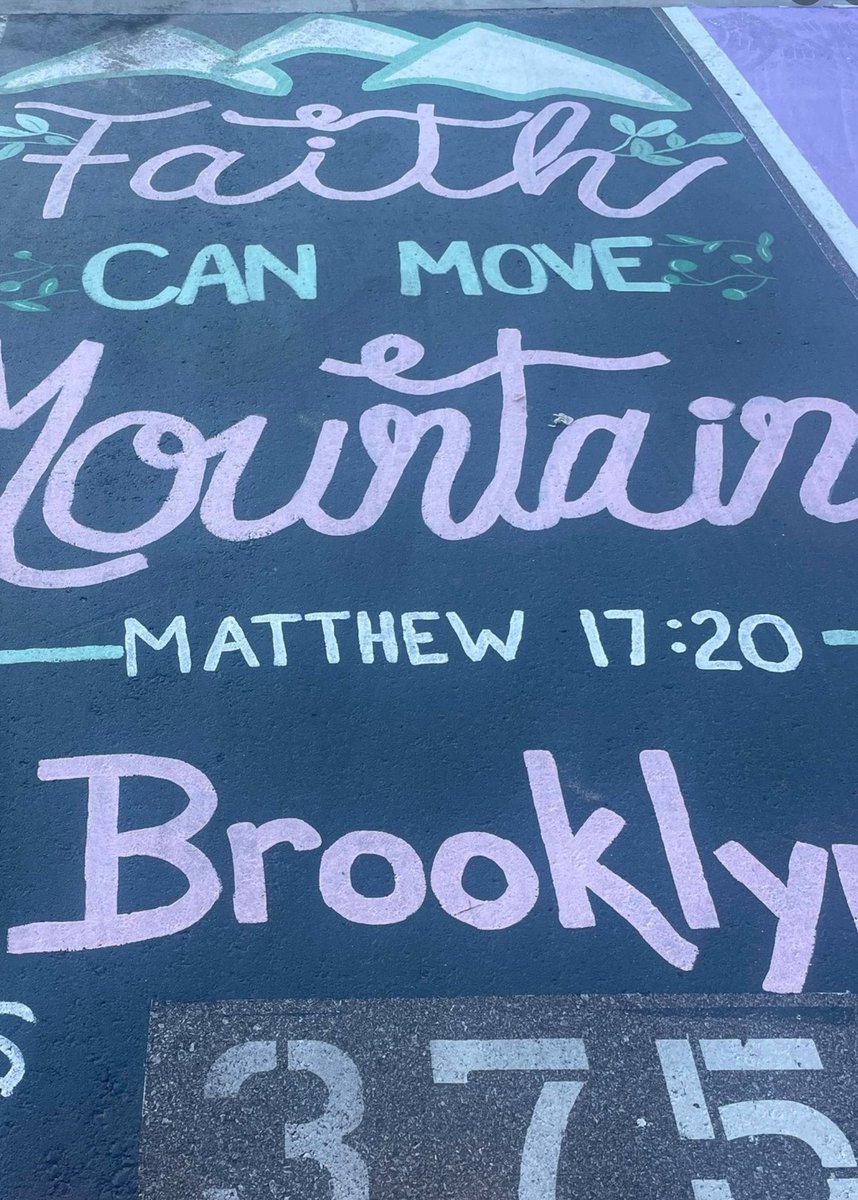 Faith
CAN MOVE
Mountain
MATTHEW 17:20
Brooklyn
s
375